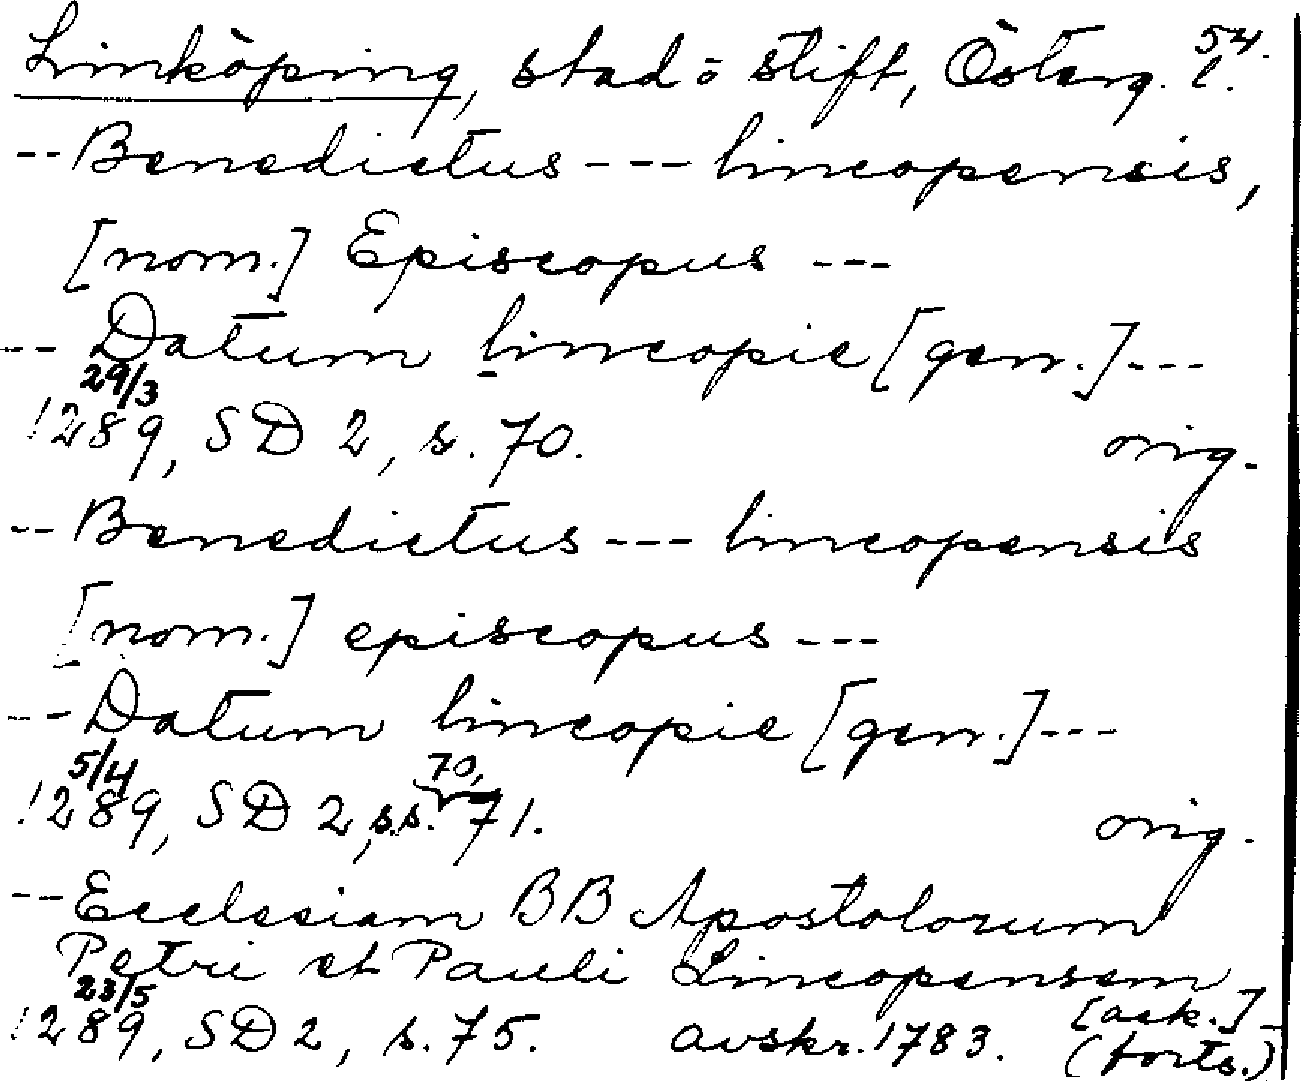 Linköping, stad o stift, Österg. l. 54.
-- Benedictus --- lincopensis,
[nom.] Episcopus ---
-- Datum lincopie [gen.] ---
29/3 1289, SD 2, s. 70. orig.
-- Benedictus --- lincopensis
[nom.] episcopus ---
-- Datum lincopie [gen.] ---
5/4 1289, SD 2, s.s. 70, 71. orig.
-- Ecclesiam BB Apostolorum
Petri et Pauli Lincopensem
23/5 1289, SD 2, s. 75. avskr. 1783. [ack.] -
(forts.)